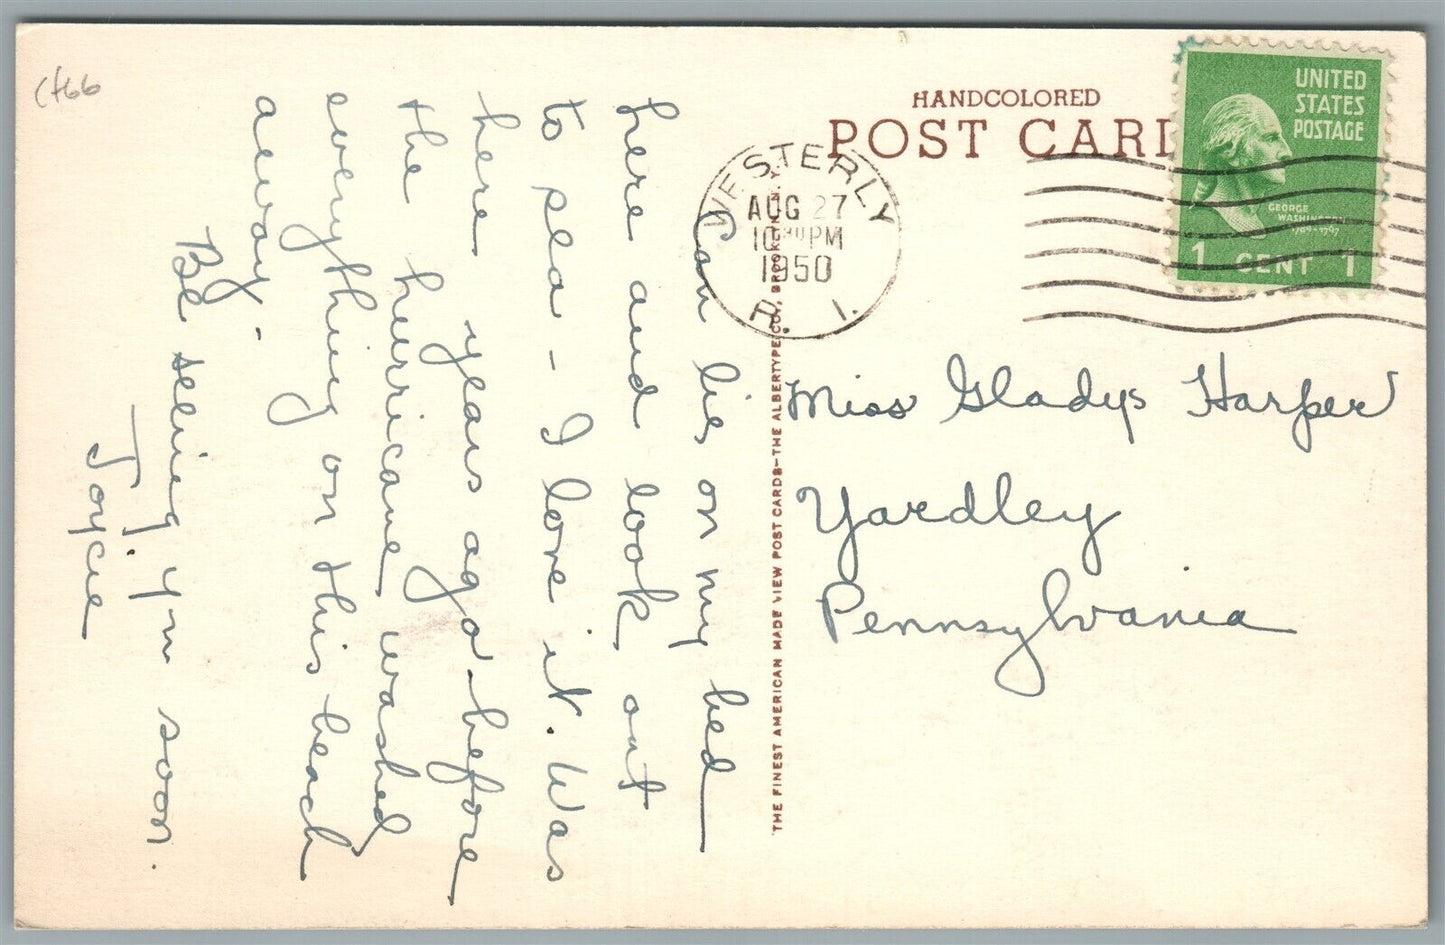 cf66
HANDCOLORED
POST CARD
UNITED
STATES
POSTAGE
GEORGE
WASHINGTON
1789-1797
1 CENT 1
WESTERLY
AUG 27
10 30 PM
1950
R. I.
Can lie on my bed
here and look out
to sea - I love it. Was
here years ago - before
the hurricane washed
everything on this beach
away -
Be seeing you soon.
Joyce
THE FINEST AMERICAN MADE VIEW POST CARDS-THE ALBERTYPE CO., BROOKLYN, N. Y.
Miss Gladys Harper
Yardley
Pennsylvania